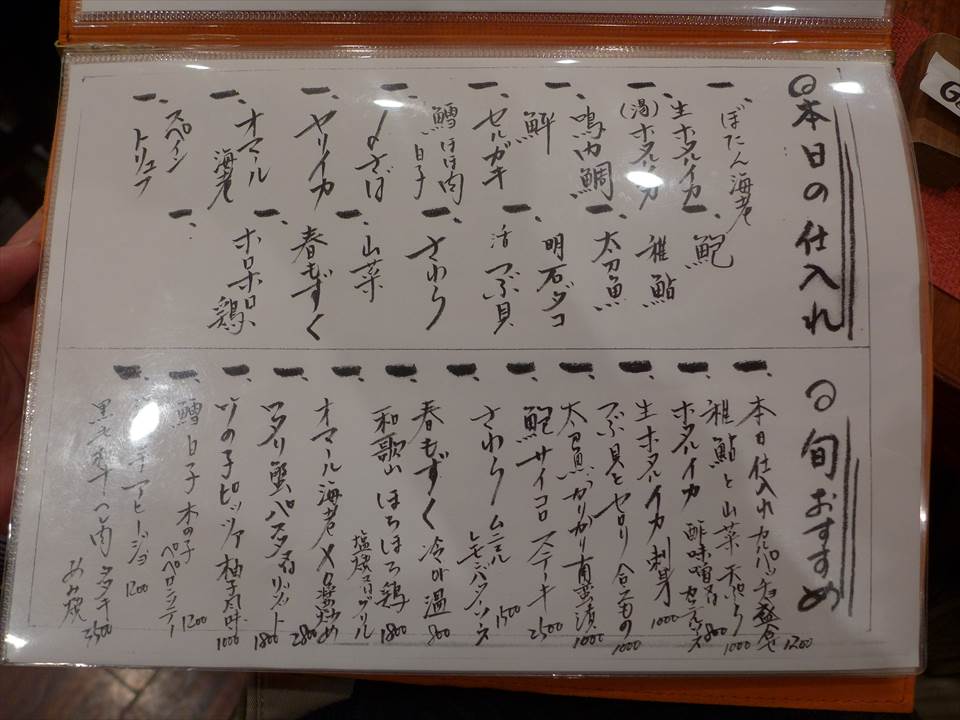 本日の仕入れ
一、ぼたん海老
一、生ホタルイカ
(湯)ホタルイカ
一、鳴門鯛
一、鮃
一、セルガキ
一、鱈ほほ肉
白子
一、〆さば
一、ヤリイカ
一、オマール
海老
一、スペイン
トリュフ
一、鮑
一、稚鮎
一、太刀魚
一、明石ダコ
一、活つぶ貝
一、さわら
一、山菜
一、春もずく
一、ホロホロ鶏
一、
旬おすすめ
一、本日仕入れカルパッチョ盛合せ 1200
一、稚鮎と山菜天ぷら 1000
一、ホタルイカ 酢味噌 800
一、生ホタルイカ刺身 1000
一、つぶ貝とセロリ 1000
一、太刀魚かりかり南蛮漬 1000
一、鮑サイコロステーキ 2500
一、さわらムニエル
レモンバターソース 1500
一、春もずく 冷or温 800
一、和歌山ほろほろ鶏
塩焼orグリル 1800
一、オマール海老 2800
一、ワタリ蟹パスタorリゾット 1800
一、竹の子ピッツァ柚子風味 1000
一、鱈白子木の子
ペペロンチーノ 1200
一、アヒージョ 1200
一、黒毛和牛
あみ焼 2500